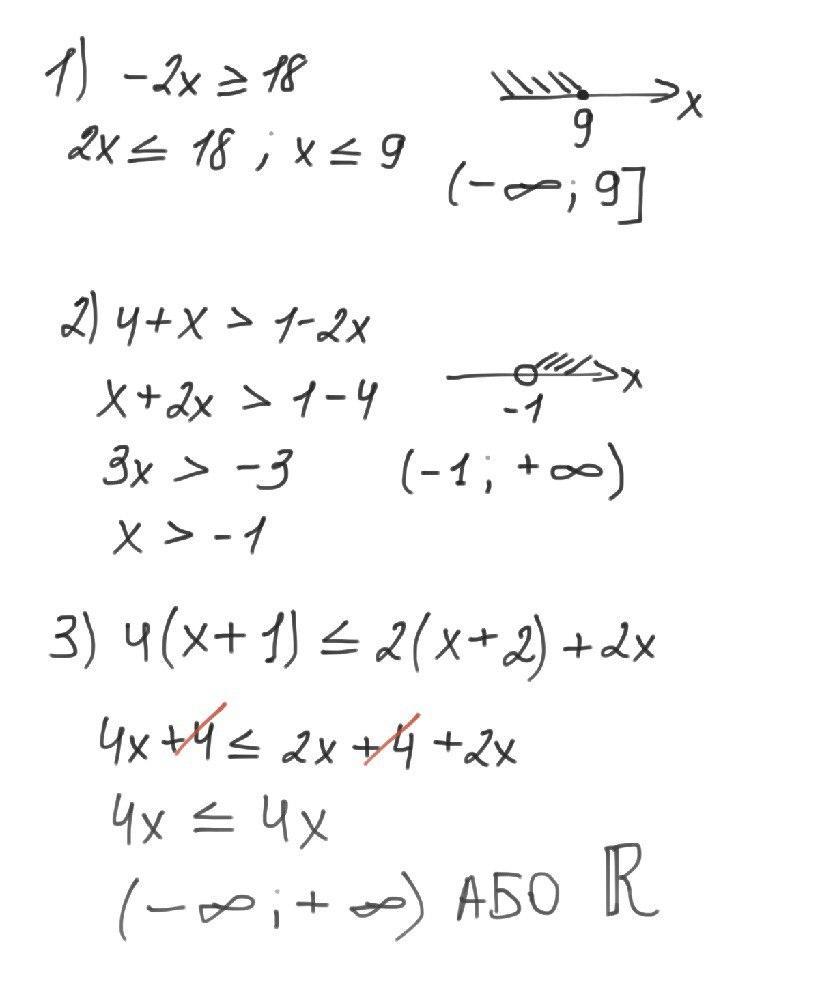 1) -2x ≥ 18
2x ≤ 18 ; x ≤ 9
x
9
(-∞; 9]
2) 4+x > 1-2x
x+2x > 1-4
3x > -3
x > -1
x
-1
(-1; +∞)
3) 4(x+1) ≤ 2(x+2)+2x
4x+4 ≤ 2x+4+2x
4x ≤ 4x
(-∞;+∞) АБО ℝ